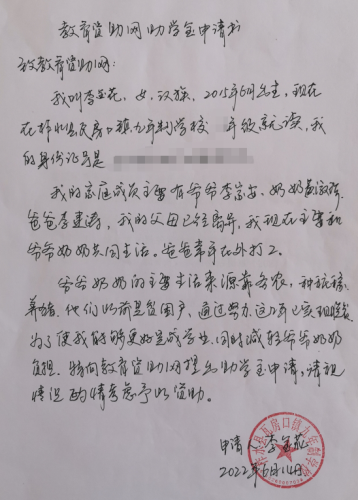 教育资助网助学金申请书
致教育资助网:
我叫李金花,女,汉族,2015年6月出生,现在
在柞水县瓦房口镇九年制学校 年级就读,我
的身份证号是
我的家庭成员主要有爷爷李 、奶奶
爸爸李 ,我的父母已经离异,我现在主要和
爷爷奶奶共同生活。爸爸常年在外打工。
爷爷奶奶的主要生活来源靠务农,种
养 。他们以前是贫困户,通过努力这几年已实现脱贫
为了使我能够更好完成学业,同时减轻爷爷奶奶
负担,特向教育资助网提出助学金申请,请视
情况酌情考虑予以资助。
申请人 李金花
2022年6月14日
柞水县瓦房口镇九年制学校